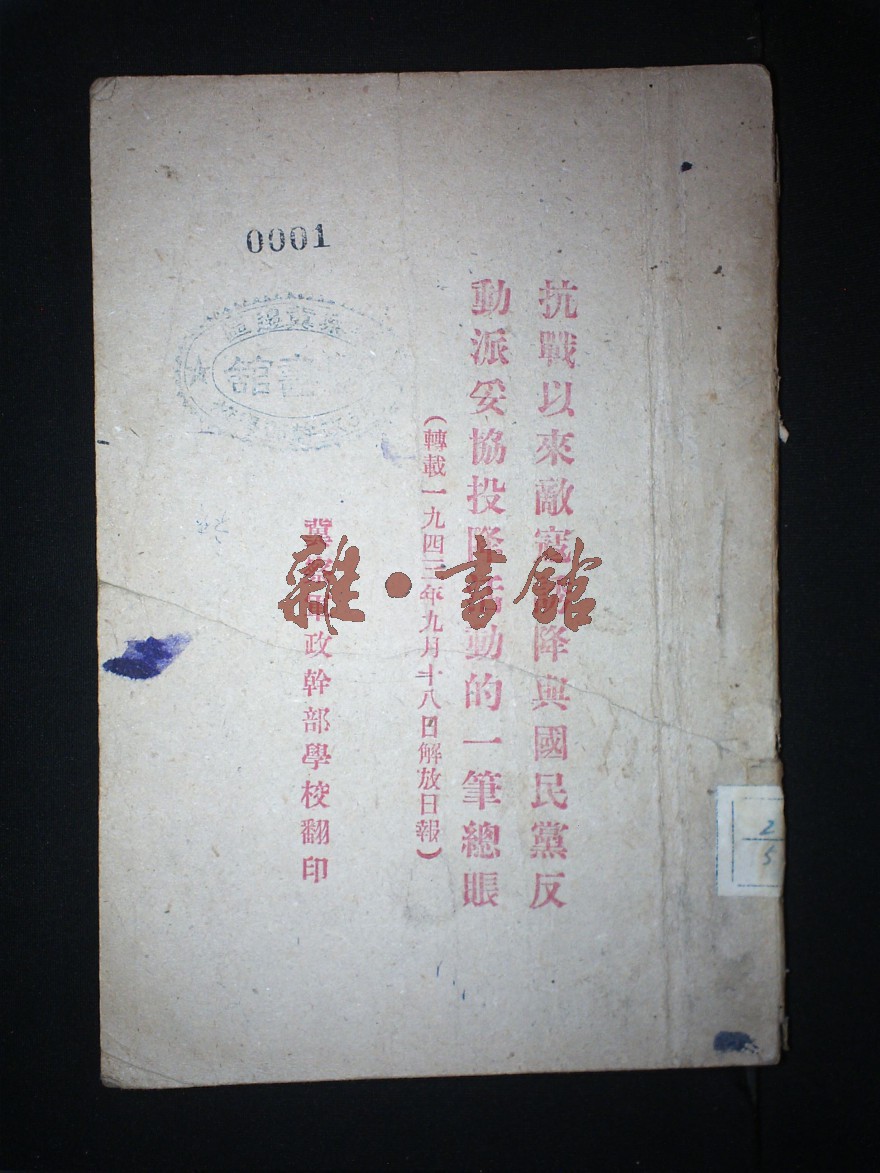 抗戰以來敵寇誘降與國民黨反
動派妥協投降活動的一筆總賬
(轉載一九四三年九月十八日解放日報)
冀察軍政幹部學校翻印
0001
書館
雜·書館
2
5